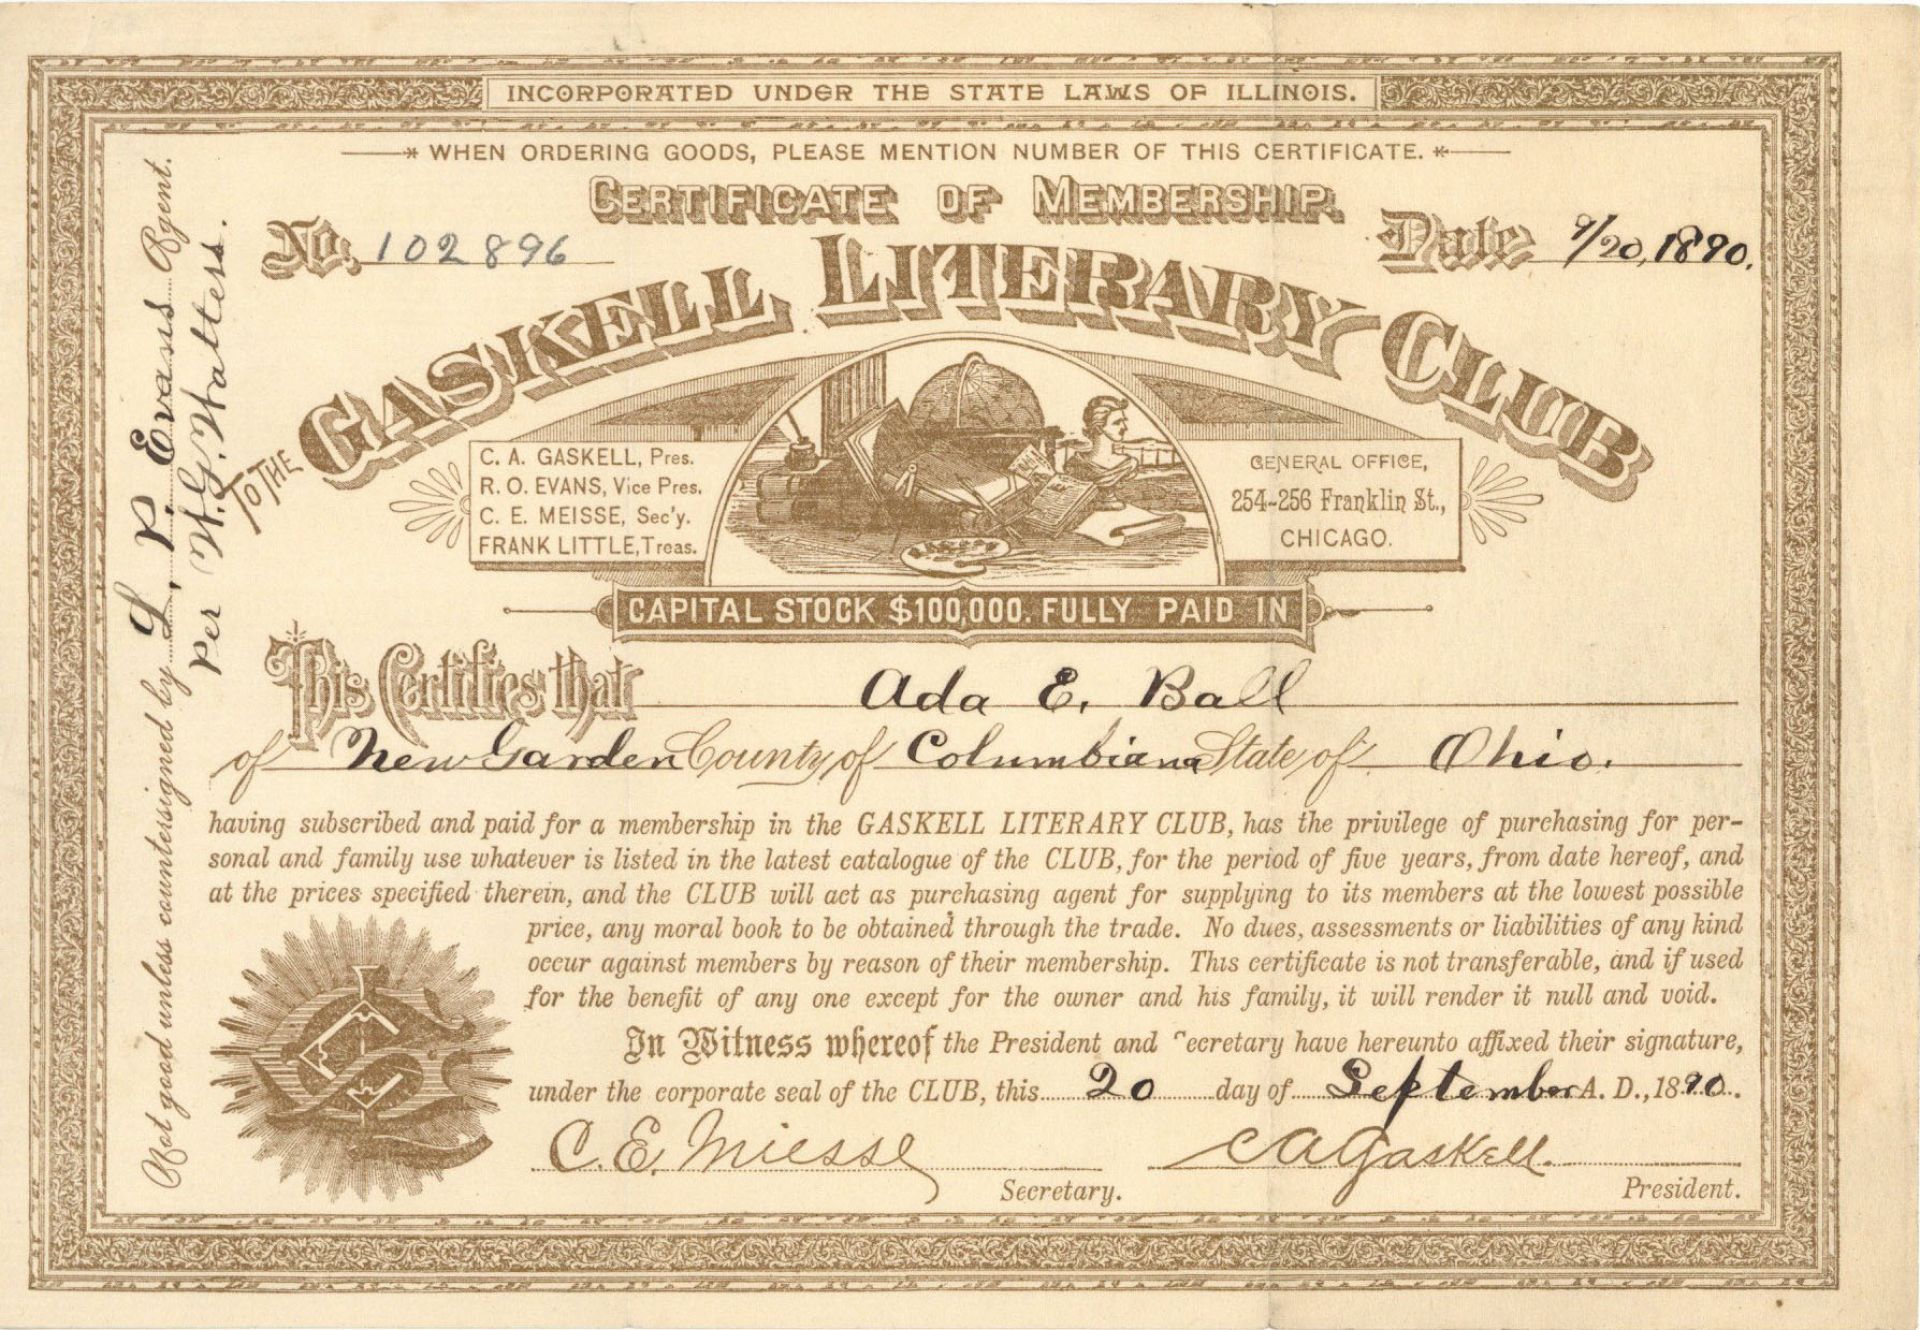 INCORPORATED UNDER THE STATE LAWS OF ILLINOIS.
WHEN ORDERING GOODS, PLEASE MENTION NUMBER OF THIS CERTIFICATE.
CERTIFICATE OF MEMBERSHIP.
No. 102896
Date 9/20, 1890.
TO THE
GASKELL LITERARY CLUB
C. A. GASKELL, Pres.
R. O. EVANS, Vice Pres.
C. E. MEISSE, Sec'y.
FRANK LITTLE, Treas.
GENERAL OFFICE,
254-256 Franklin St.,
CHICAGO.
CAPITAL STOCK $100,000. FULLY PAID IN
This Certifies that Ada E. Ball
of New Garden County of Columbiana State of Ohio.
having subscribed and paid for a membership in the GASKELL LITERARY CLUB, has the privilege of purchasing for per-
sonal and family use whatever is listed in the latest catalogue of the CLUB, for the period of five years, from date hereof, and
at the prices specified therein, and the CLUB will act as purchasing agent for supplying to its members at the lowest possible
price, any moral book to be obtained through the trade. No dues, assessments or liabilities of any kind
occur against members by reason of their membership. This certificate is not transferable, and if used
for the benefit of any one except for the owner and his family, it will render it null and void.
In Witness whereof the President and Secretary have hereunto affixed their signature,
under the corporate seal of the CLUB, this 20 day of September A. D., 1890.
C. E. Miesse
Secretary.
C A Gaskell.
President.
Not good unless countersigned by L. P. Evans Agent.
Per W. G. Walters.